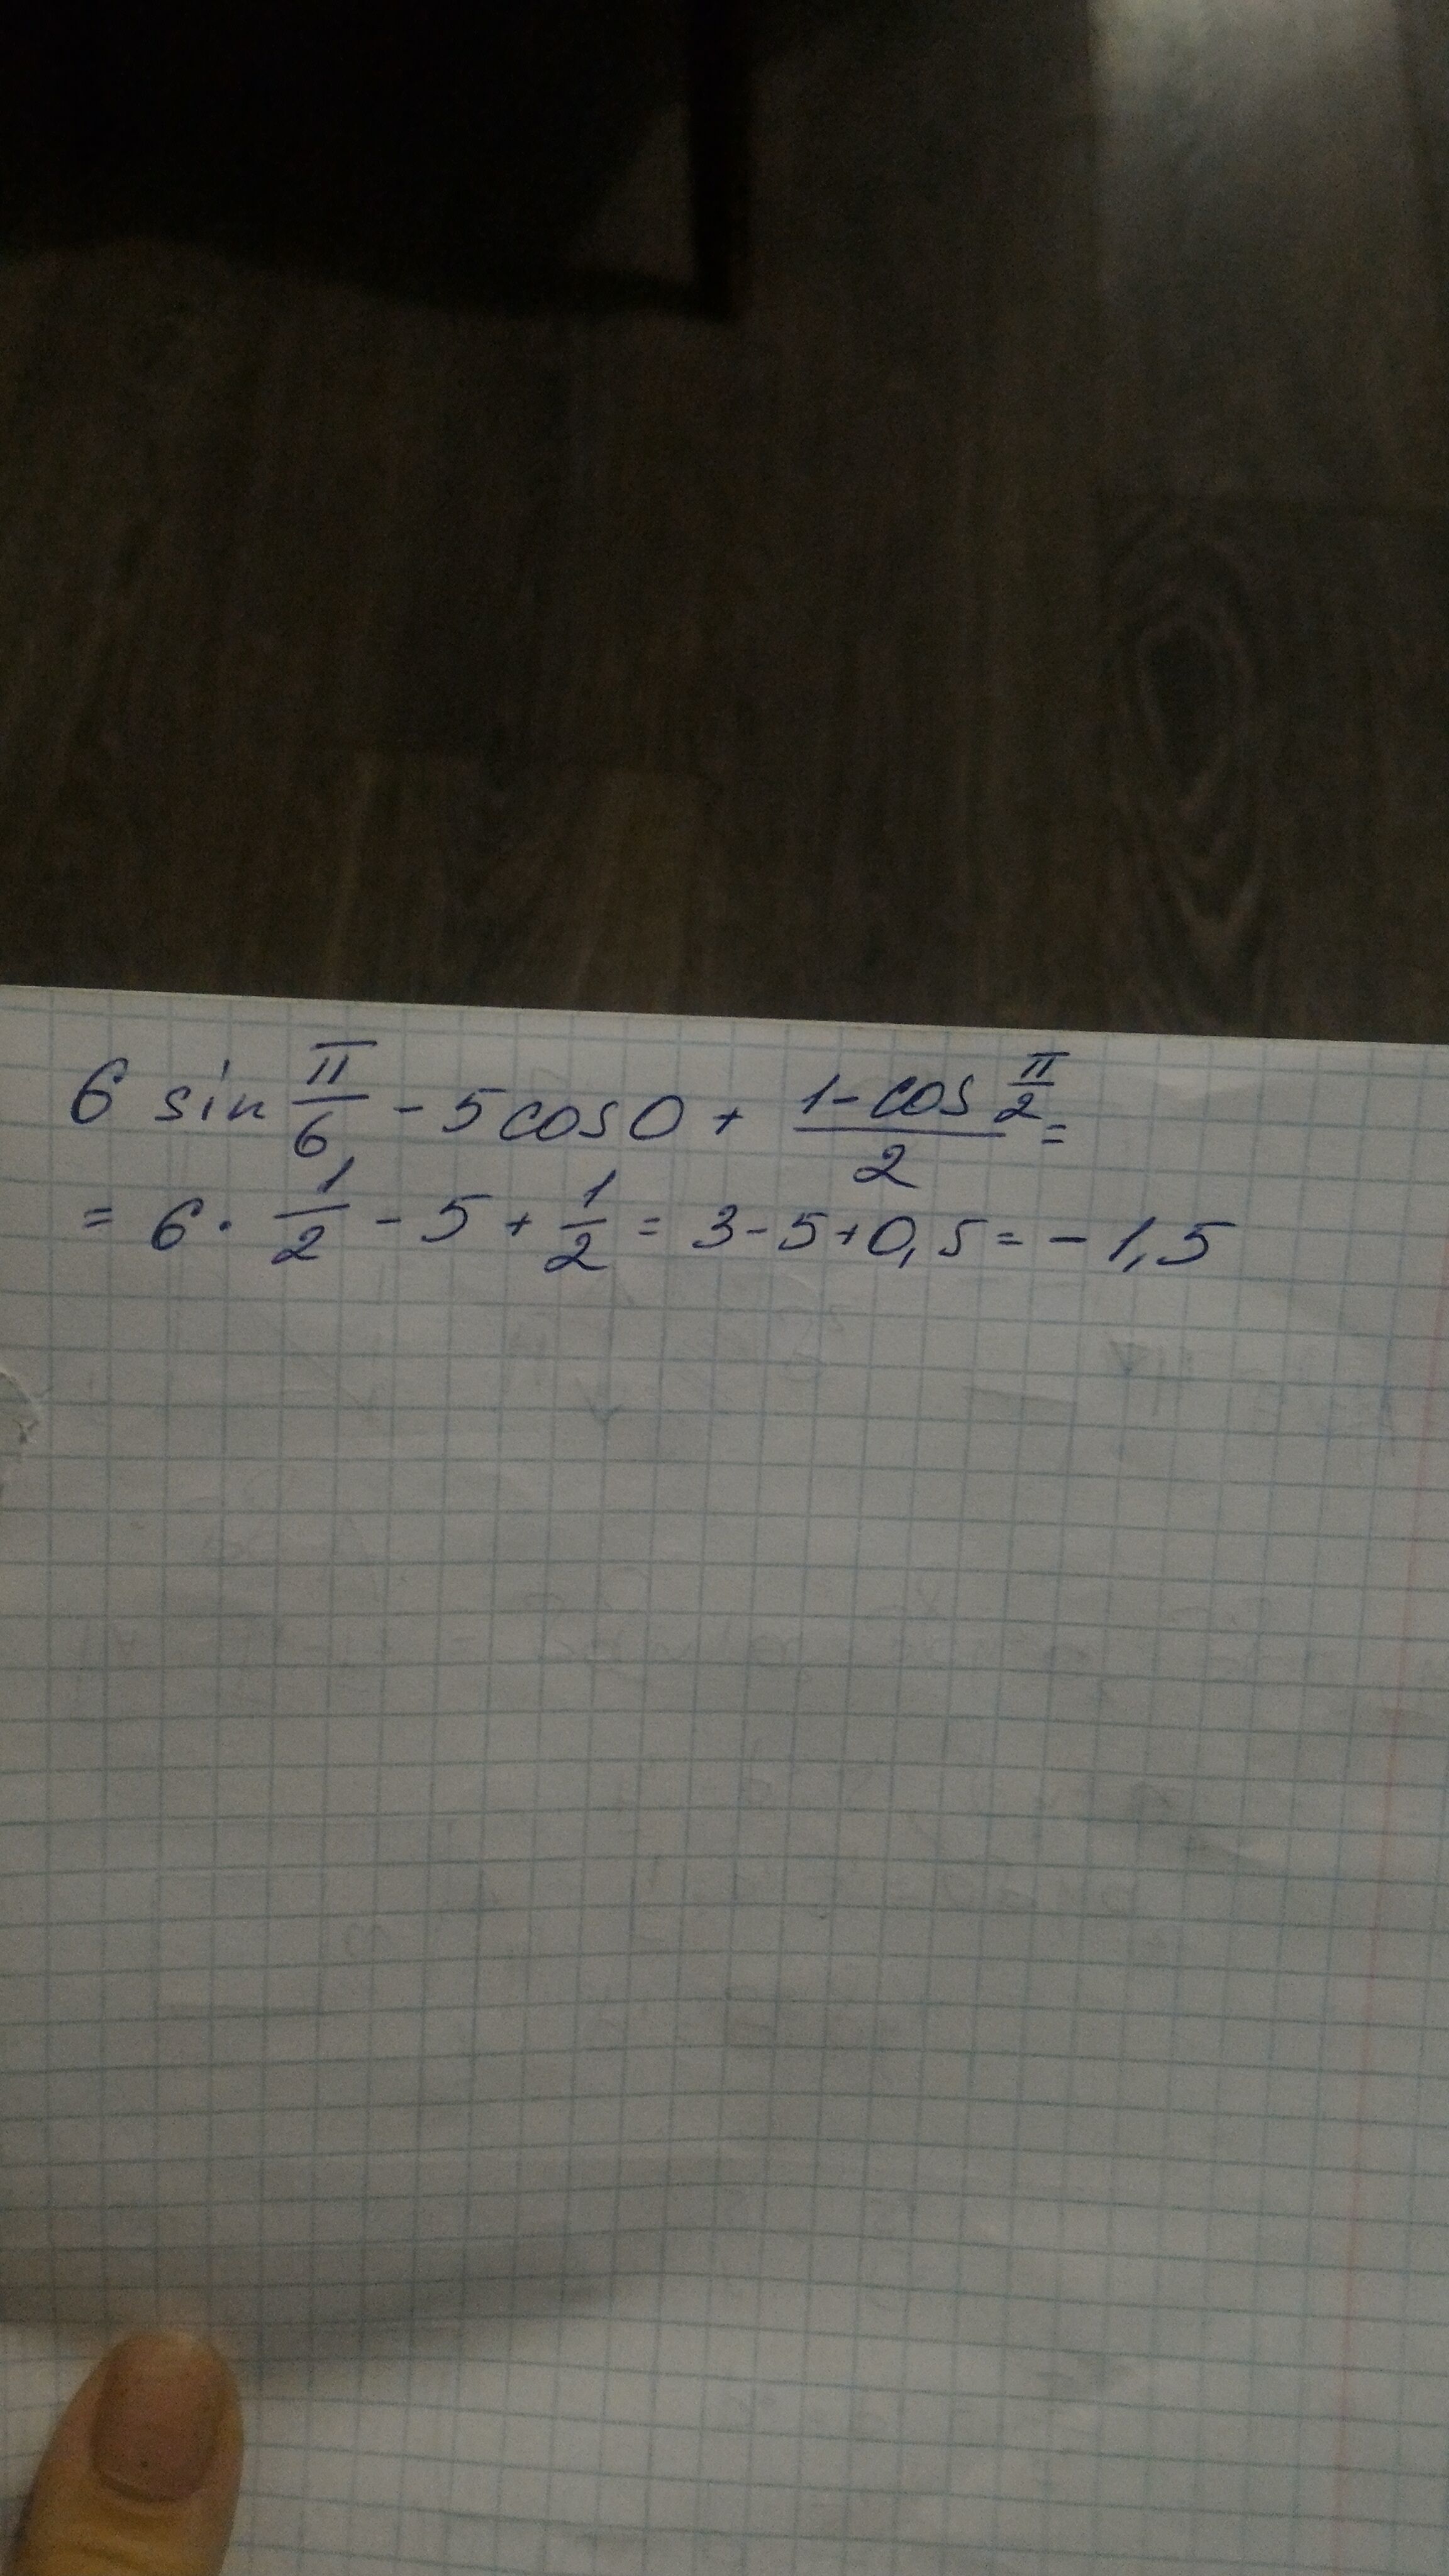 6 sin π/6 - 5cos0 + (1-cos π/2)/2 =
= 6 · 1/2 - 5 + 1/2 = 3-5+0,5 = -1,5